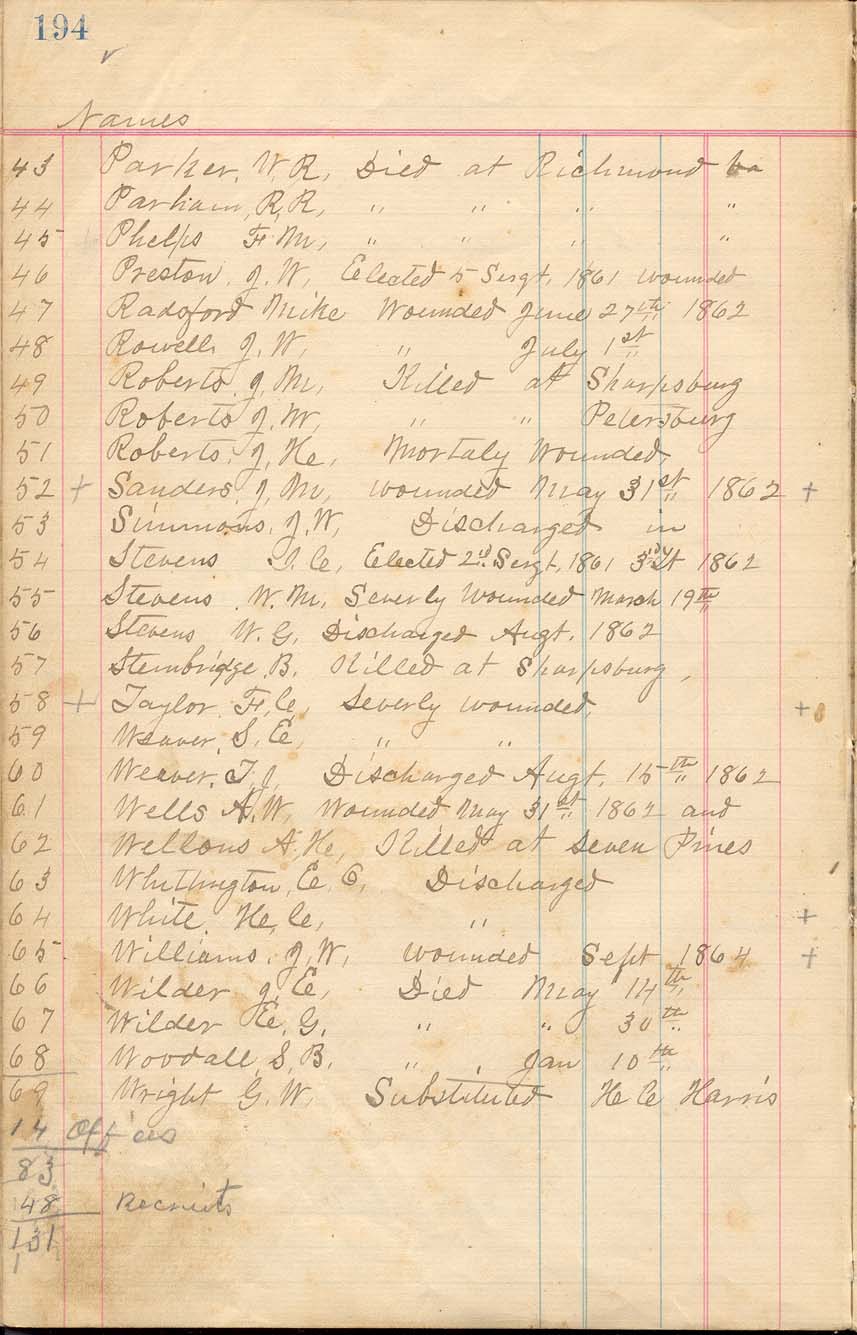 194
Names
43 Parker, W, R, Died at Richmond Va
44 Parham, R, R, " " " "
45 Phelps F. M, " " " "
46 Preston, J. W, Elected 5 Sergt, 1861 wounded
47 Radsford Mike Wounded June 27th 1862
48 Rowell J. W, " July 1st "
49 Roberts, J, M, Killed at Sharpsburg
50 Roberts J. W, " " Petersburg
51 Roberts, J, H, Mortaly Wounded
52 + Sanders, J, M, wounded May 31st 1862 +
53 Simmons, J. W, Discharged in
54 Stevens C, Elected 2d Sergt, 1861 3d Lt 1862
55 Stevens W. M, Severly Wounded March 19th
56 Stevens W. G, Discharged Augt. 1862
57 Stembridge, B. Killed at Sharpsburg,
58 + Taylor, F, C, Severly wounded, +
59 Weaver, S. E, " "
60 Weaver, T. J, Discharged Augt. 15th 1862
61 Wells A. W, Wounded May 31st 1862 and
62 Wellons A. H, Killed at Seven Pines
63 E. C, Discharged
64 White, H, C, " +
65 Williams, J, W, wounded Sept 1864 +
66 Wilder J, E, Died May 14th
67 Wilder E. G, " " 30th
68 Woodall, S, B. " Jan 10th
69 Wright G. W, Substituted H C Harris
14
83
48 Recruits
131
1